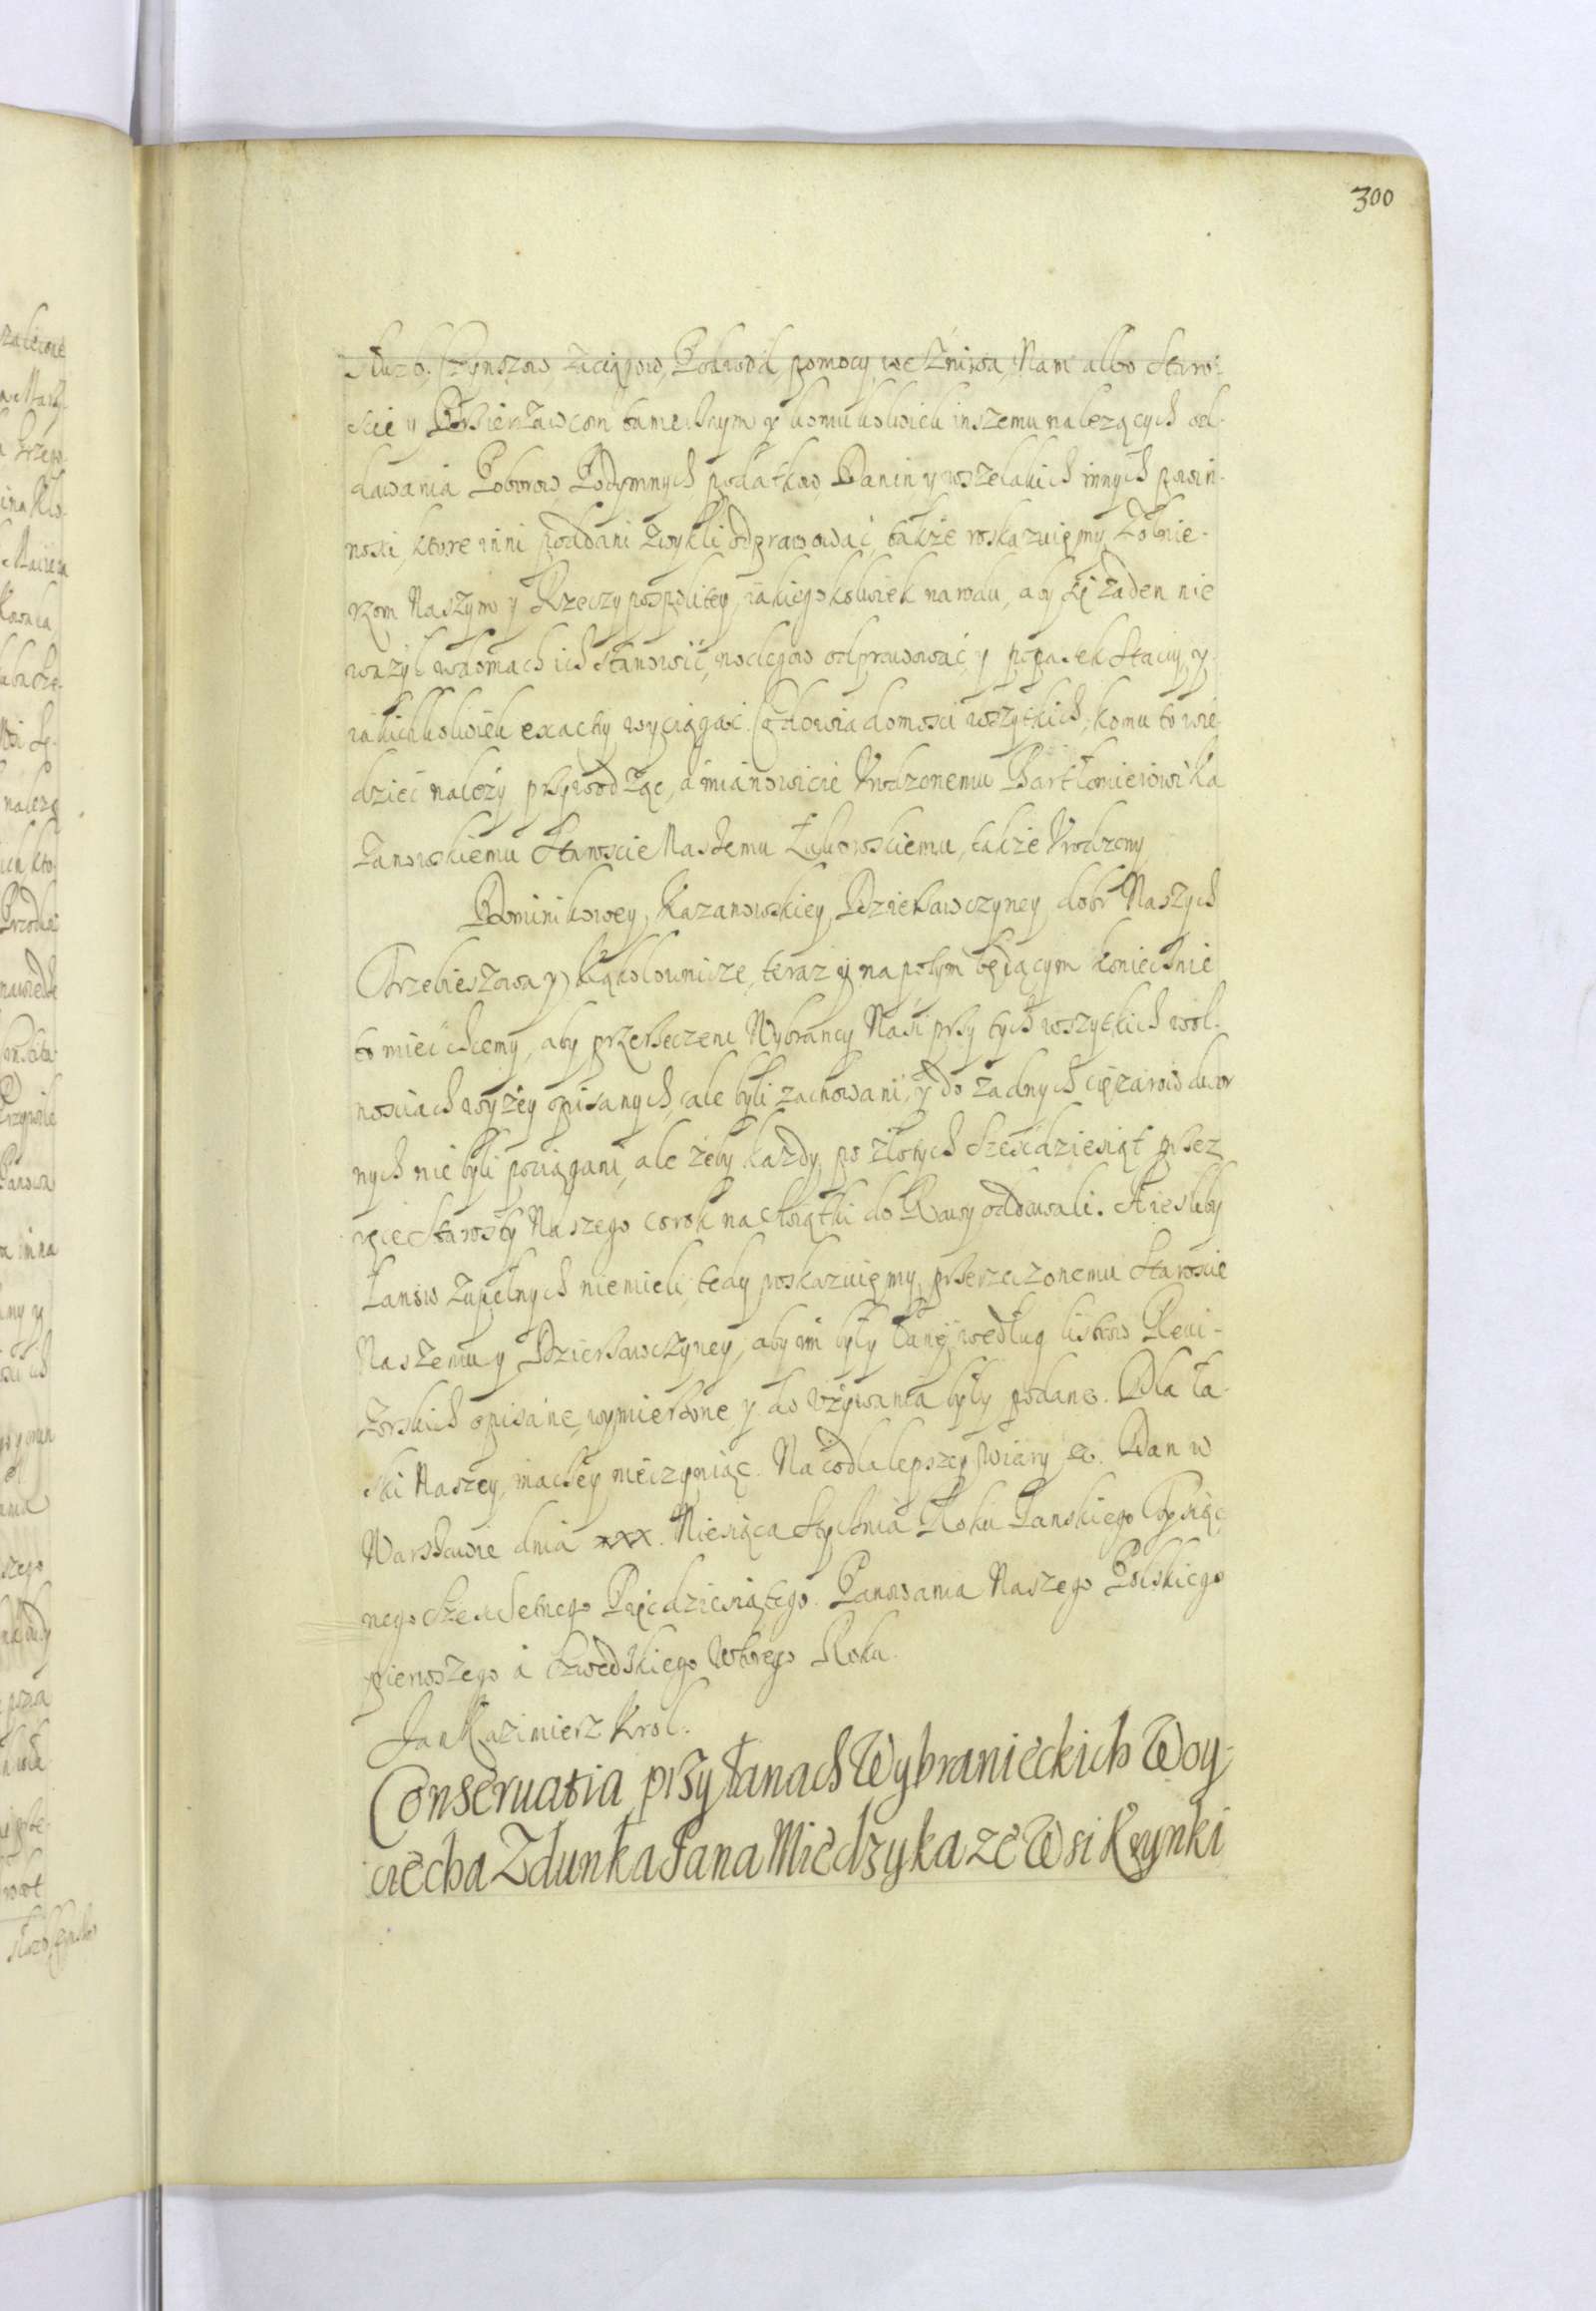 300
Służb, Czynszow, zaciągow, Podwod, pomocy we Żniwa, Nam albo Staro-
scie y Dzierżawcom tamecznym y komukolwiek inszemu należących od-
dawania Poborow, Podymnych podatkow Danin y wszelakich innych powin-
nosci, ktore inni poddani zwykli odprawować, także roskazuięmy Żołnie-
rzom Naszym y Rzeczypospolitey, iakiegokolwiek narodu, aby się żaden nie
ważył w domach ich stanowić, noclegow odprawować y popasek Stacyy y
iakichkolwiek exactiy wyciągać. Co do wiadomosci wszytkich, komu to wie-
dzieć należy przywodząc, a mianowicie Vrodzonemu Bartłomieiowi Ka
zanowskiemu Staroscie Naszemu Łukowskiemu, także Vrodzony
Dominikowey Kazanowskiey Dzierżawczyney dobr Naszych
Trzebieszowa y Kąkolownicze, teraz y na potym będącym koniecznie
to mieć chcemy, aby przerzeczeni Wybrancy Nasi przy tych wszytkich wol-
nosciach wyżey opisanych, cale byli zachowani, y do żadnych ciężarow dwor
nych nie byli pociągani, ale żeby każdy po złotych Szescdziesiąt przez
ręce Starosty Naszego co rok na Swiątki do Rawy oddawali. A iesliby
Łanow zupełnych nie mieli, tedy roskazuięmy przerzeczonemu Staroscie
Naszemu y Dzierżawczyney, aby im były Łany według listow Rewi-
zorskich opisane, wymierzone y do vżywania były podane. Dla ła-
ski Naszey, inaczey nie czyniąc. Na co dla lepszey wiary &. Dan w
Warszawie dnia xxx. Miesiąca Stycznia Roku Panskiego Tysiąc
nego Szescsetnego Pięcdziesiątego. Panowania Naszego Polskiego
pierwszego a Szwedskiego wtorego Roku.
Jan Kazimierz Krol.
Conseruatia przy łanach Wybranieckich Woy-
ciecha Zdunka Jana Miedzyka ze Wsi Krzynki